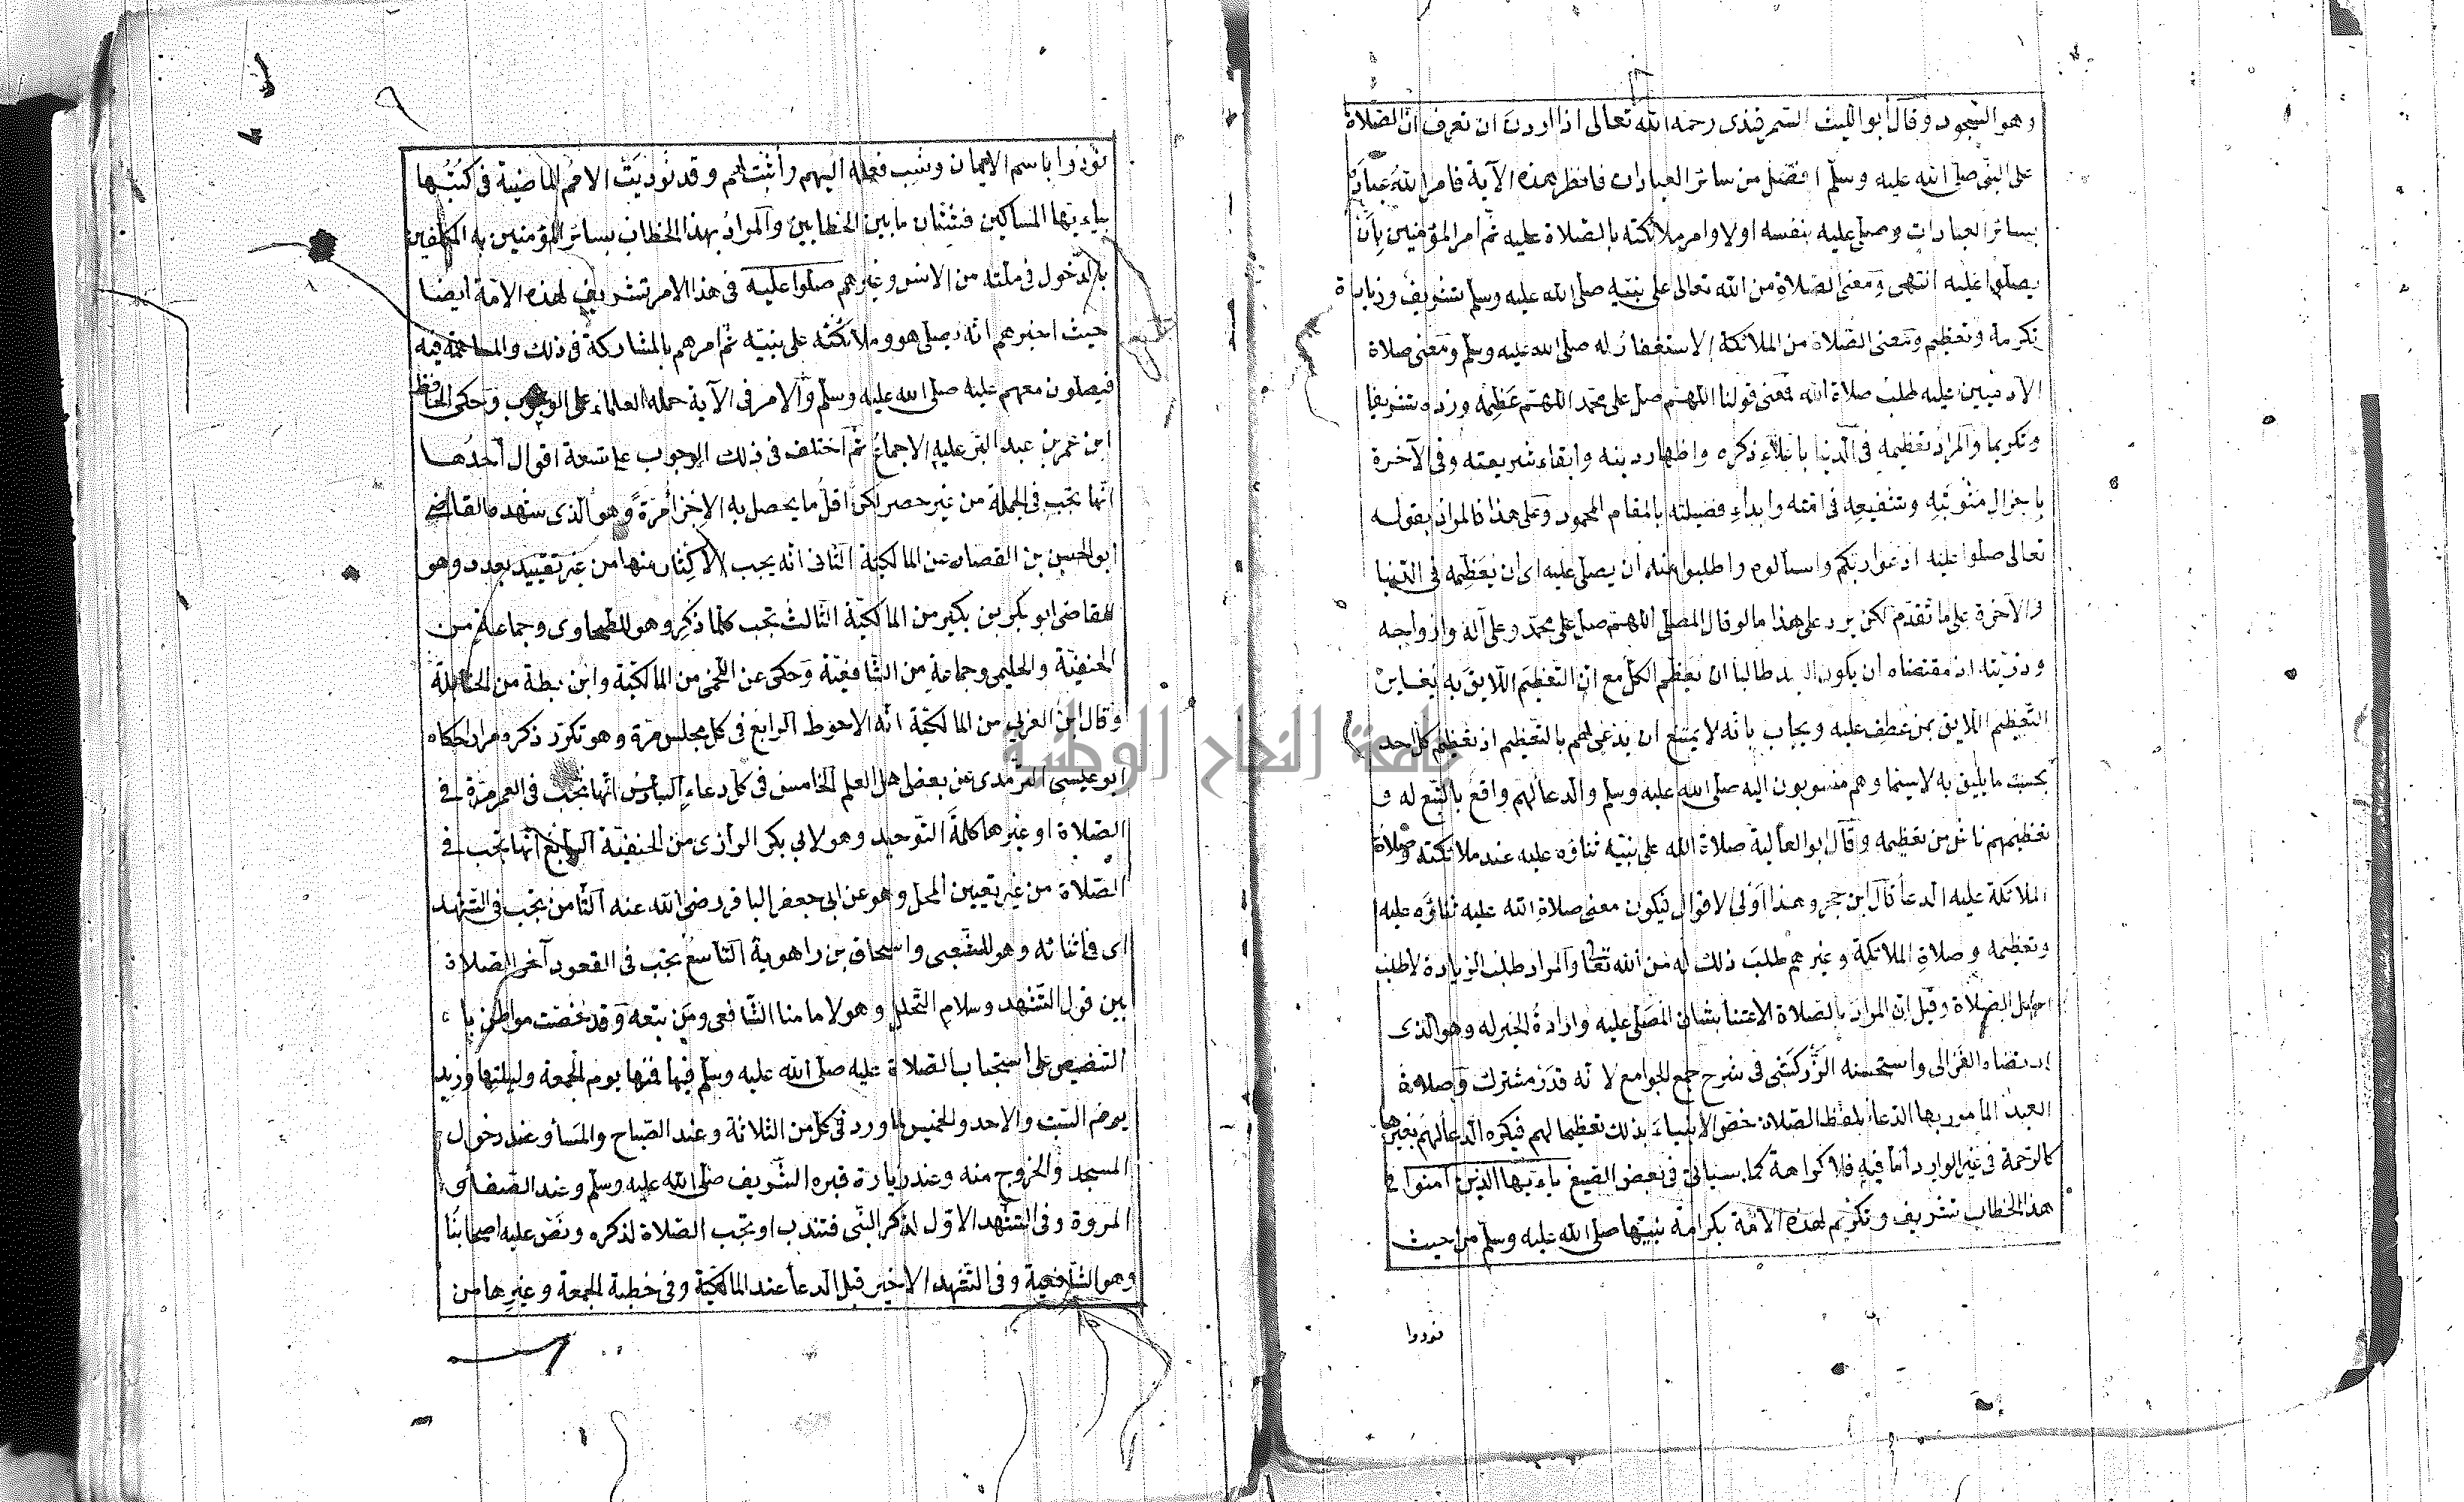 وهو السجود وقال أبو الليث السمرقندى رحمه الله تعالى اذا اردت ان تعرف ان الصلاة
على النبى صلى الله عليه وسلم افضل من سائر العبادات فانظر هذه الآية فامر الله عباده
بسائر العبادات وصلى عليه بنفسه اولا وامر ملائكته بالصلاة عليه ثم امر المؤمنين بان
يصلوا عليه انتهى ومعنى الصلاة من الله تعالى على نبيه صلى الله عليه وسلم تشريف وزيادة
تكرمة وتعظيم ومعنى الصلاة من الملائكة الاستغفار له صلى الله عليه وسلم ومعنى صلاة
الآدميين عليه طلب صلاة الله فمعنى قولنا اللهم صل على محمد اللهم عظمه وزده تشريفا
وتكريما والمراد تعظيمه فى الدنيا باعلاء ذكره واظهار دينه وابقاء شريعته وفى الآخرة
باجزال مثوبته وتشفيعه فى امته وابداء فضيلته بالمقام المحمود وعلى هذا فالمراد بقوله
تعالى صلوا عليه ادعوا ربكم واسألوه واطلبوا منه ان يصلى عليه اى ان يعظمه فى الدنيا
والآخرة على ما تقدم لكن يرد على هذا ما لو قال المصلى اللهم صل على محمد وعلى آله وازواجه
وذريته اذ مقتضاه ان يكون العبد طالبا ان يعظم الكل مع ان التعظيم اللايق به يغاير
التعظيم اللايق بمن عطف عليه ويجاب بانه لا يمتنع ان يدعى لهم بالتعظيم اذ تعظيم كل احد
بحسب ما يليق به لاسيما وهم منسوبون اليه صلى الله عليه وسلم والدعا لهم واقع بالتبع له و
تعظيمهم ناش من تعظيمه وقال ابو العالية صلاة الله على نبيه ثناؤه عليه عند ملائكته وصلاة
الملائكة عليه الدعا قال ابن حجر وهذا اولى الاقوال فيكون معنى صلاة الله عليه ثناؤه عليه
وتعظيمه وصلاة الملائكة وغيرهم طلب ذلك له من الله تعا والمراد طلب الزيادة لا طلب
اصل الصلاة وقيل ان المراد بالصلاة الاعتنا بشان المصلى عليه وارادة الخير له وهو الذى
ارتضاه الغزالى واستحسنه الزركشى فى شرح جمع الجوامع لانه قدر مشترك وصلاة
العبد المأمور بها الدعا بلفظ الصلاة خص الانبياء بذلك تعظيما لهم فيكره الدعا لهم بغيرها
كالرحمة فى غير الوارد اما فيه فلا كراهة كما سياتى فى بعض الصيغ ياءيها الذين آمنوا فى
هذا الخطاب تشريف وتكريم لهذه الامة بكرامة نبيها صلى الله عليه وسلم من حيث
نودوا
نودوا باسم الايمان ونسب فعله اليهم وأثبت لهم وقد نوديت الامم الماضية فى كتبها
بياءيها المساكين فشتان ما بين الخطابين والمراد بهذا الخطاب بسائر المؤمنين به المكلفين
بالدخول فى ملته من الانس وغيرهم صلوا عليه فى هذا الامر تشريف لهذه الامة ايضا
حيث اخبرهم انه يصلى هو وملائكته على نبيه ثم امرهم بالمشاركة فى ذلك والمساهمة فيه
فيصلون معهم عليه صلى الله عليه وسلم والامر فى الآية حمله العلماء على الوجوب وحكى الحافظ
ابن عمر بن عبد البر عليه الاجماع ثم اختلف فى ذلك الوجوب على تسعة اقوال احدها
انها تجب فى الجملة من غير حصر لكن اقل ما يحصل به الاجزا مرة وهو الذى شهده القاضى
ابو الحسين بن القصار عن المالكية الثانى انه يجب الاكثار منها من غير تقييد بعدد وهو
للقاضى ابو بكر بن بكير من المالكية الثالث تجب كلما ذكر وهو للطحاوى وجماعة من
الحنفية والحليمى وجماعة من الشافعية وحكى عن اللخمى من المالكية وابن بطة من الحنابلة
وقال ابن العربى من المالكية انه الاحوط الرابع فى كل مجلس مرة وهو تكرر ذكره مرارا حكاه
ابو عيسى الترمذى عن بعض اهل العلم الخامس فى كل دعاء السادس انها تجب فى العمر مرة فى
الصلاة او غيرها كلمة التوحيد وهو لابى بكر الرازى من الحنفية السابع انها تجب فى
الصلاة من غير تعيين المحل وهو عن ابى جعفر الباقر رضى الله عنه الثامن تجب فى التشهد
اى فى اثنائه وهو للشعبى واسحاق بن راهوية التاسع تجب فى القعود آخر الصلاة
بين قول التشهد وسلام التحلل وهو لامامنا الشافعى ومن تبعه وقد خصت مواطن با
التنصيص على استحباب الصلاة عليه صلى الله عليه وسلم فيها فمنها يوم الجمعة وليلتها وزيد
يوم السبت والاحد والخميس لما ورد فى كل من الثلاثة وعند الصباح والمسا وعند دخول
المسجد والخروج منه وعند زيارة قبره الشريف صلى الله عليه وسلم وعند الصفا و
المروة وفى التشهد الاول لذكر النبى فتندب او تجب الصلاة لذكره ونص عليه اصحابنا
وهو الشافعية وفى التشهد الاخير قبل الدعا عند المالكية وفى خطبة الجمعة وغيرها من
جامعة النجاح الوطنية